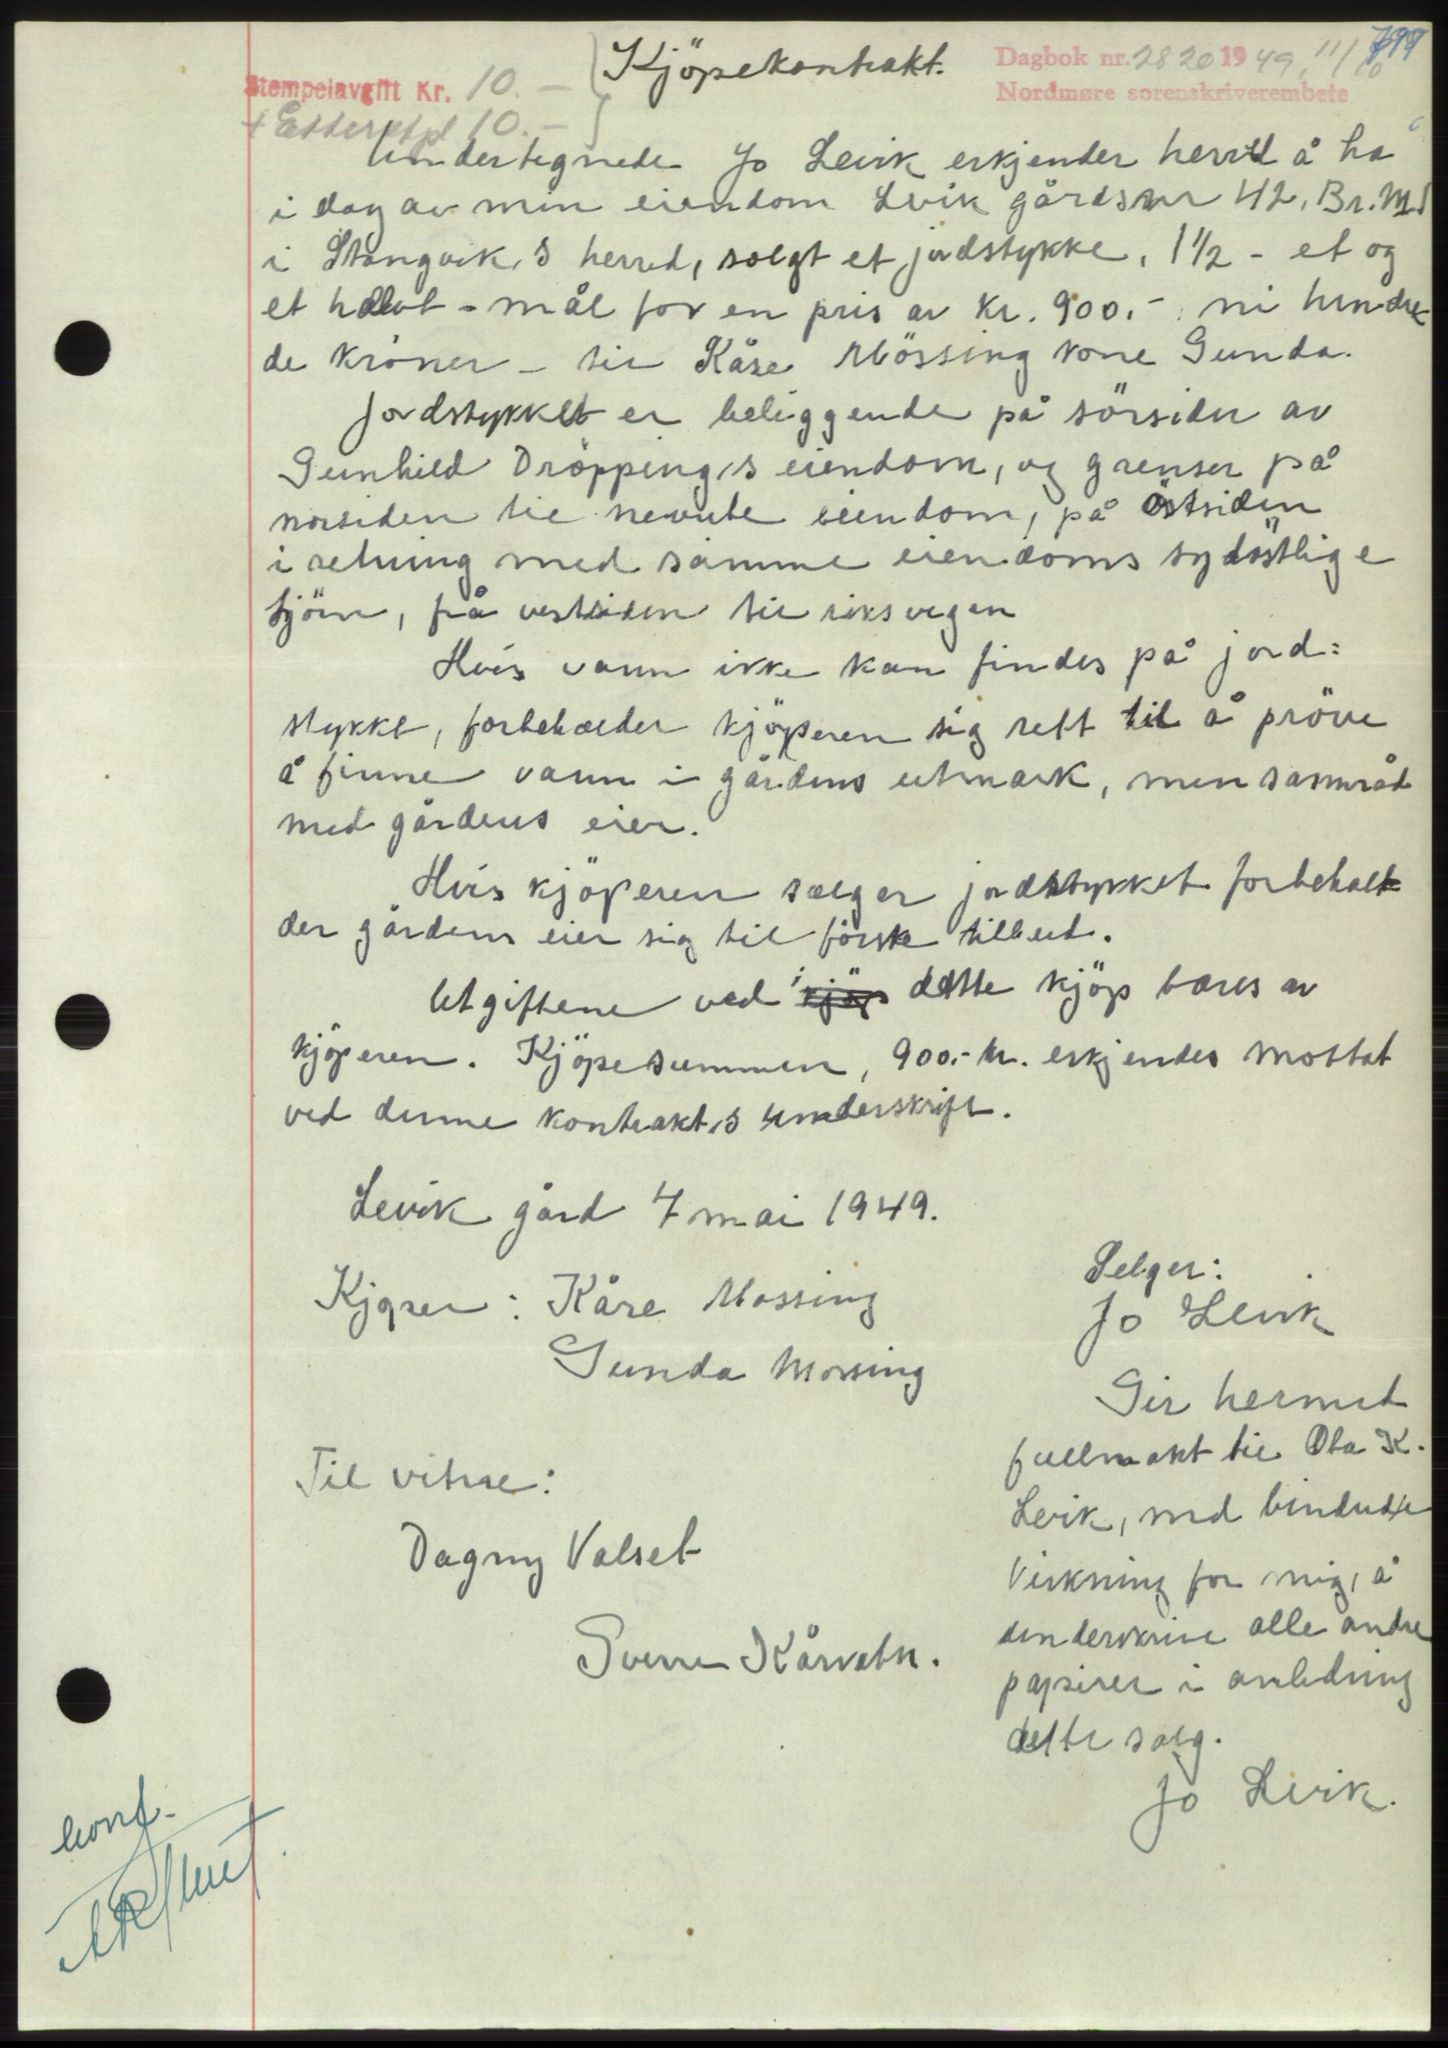 799
Kjöpekontrakt.
Dagbok nr. 2820 1949, 11/10
Nordmøre sorenskriverembete
Stempelavgift Kr. 10.-
+ 10.-
Undertegnede Jo Levik erkjender herved å ha
i dag av min eiendom Lvik gårdsnr 42, Br.
i Stangvik,s herred, solgt et jordstykke, 1 1/2 - et og
et halvt - mål for en pris av kr. 900.- ni hundre
de kroner - til Kåre Mössing kone Gunda.
Jordstykket er beliggende på sörsiden av
Gunhild Dröpping,s eiendom, og grenser på
norsiden til nevnte eiendom, på östsiden
i retning med samme eiendoms sydöstlige
hjörn, på vestsiden til riksvegen
Hvis vann ikke kan findes på jord=
stykket, forbeholder kjöperen sig rett til å pröve
å finne vann i gårdens utmark, men samråd
med gårdens eier.
Hvis kjöperen selger jordstykket forbehol
der gårdens eier sig til förste tilbud.
Utgiftene ved kjöp dette kjöp bæres av
kjöperen. Kjöpesummen, 900.- kr. erkjendes mottat
ved denne kontrakt,s underskrift.
Levik gård 7 mai 1949.
Selger:
Kjøper: Kåre Mossing
Jo Levik
Gunda Mossing
Gir hermed
fullmakt til Ola K.
Til vitne:
Levik, med bindende
Dagny Valset
Virkning for mig, å
underskrive alle andre
Sverre Kårvatn.
papirer i anledning
dette salg.
Jo Levik.
konf.